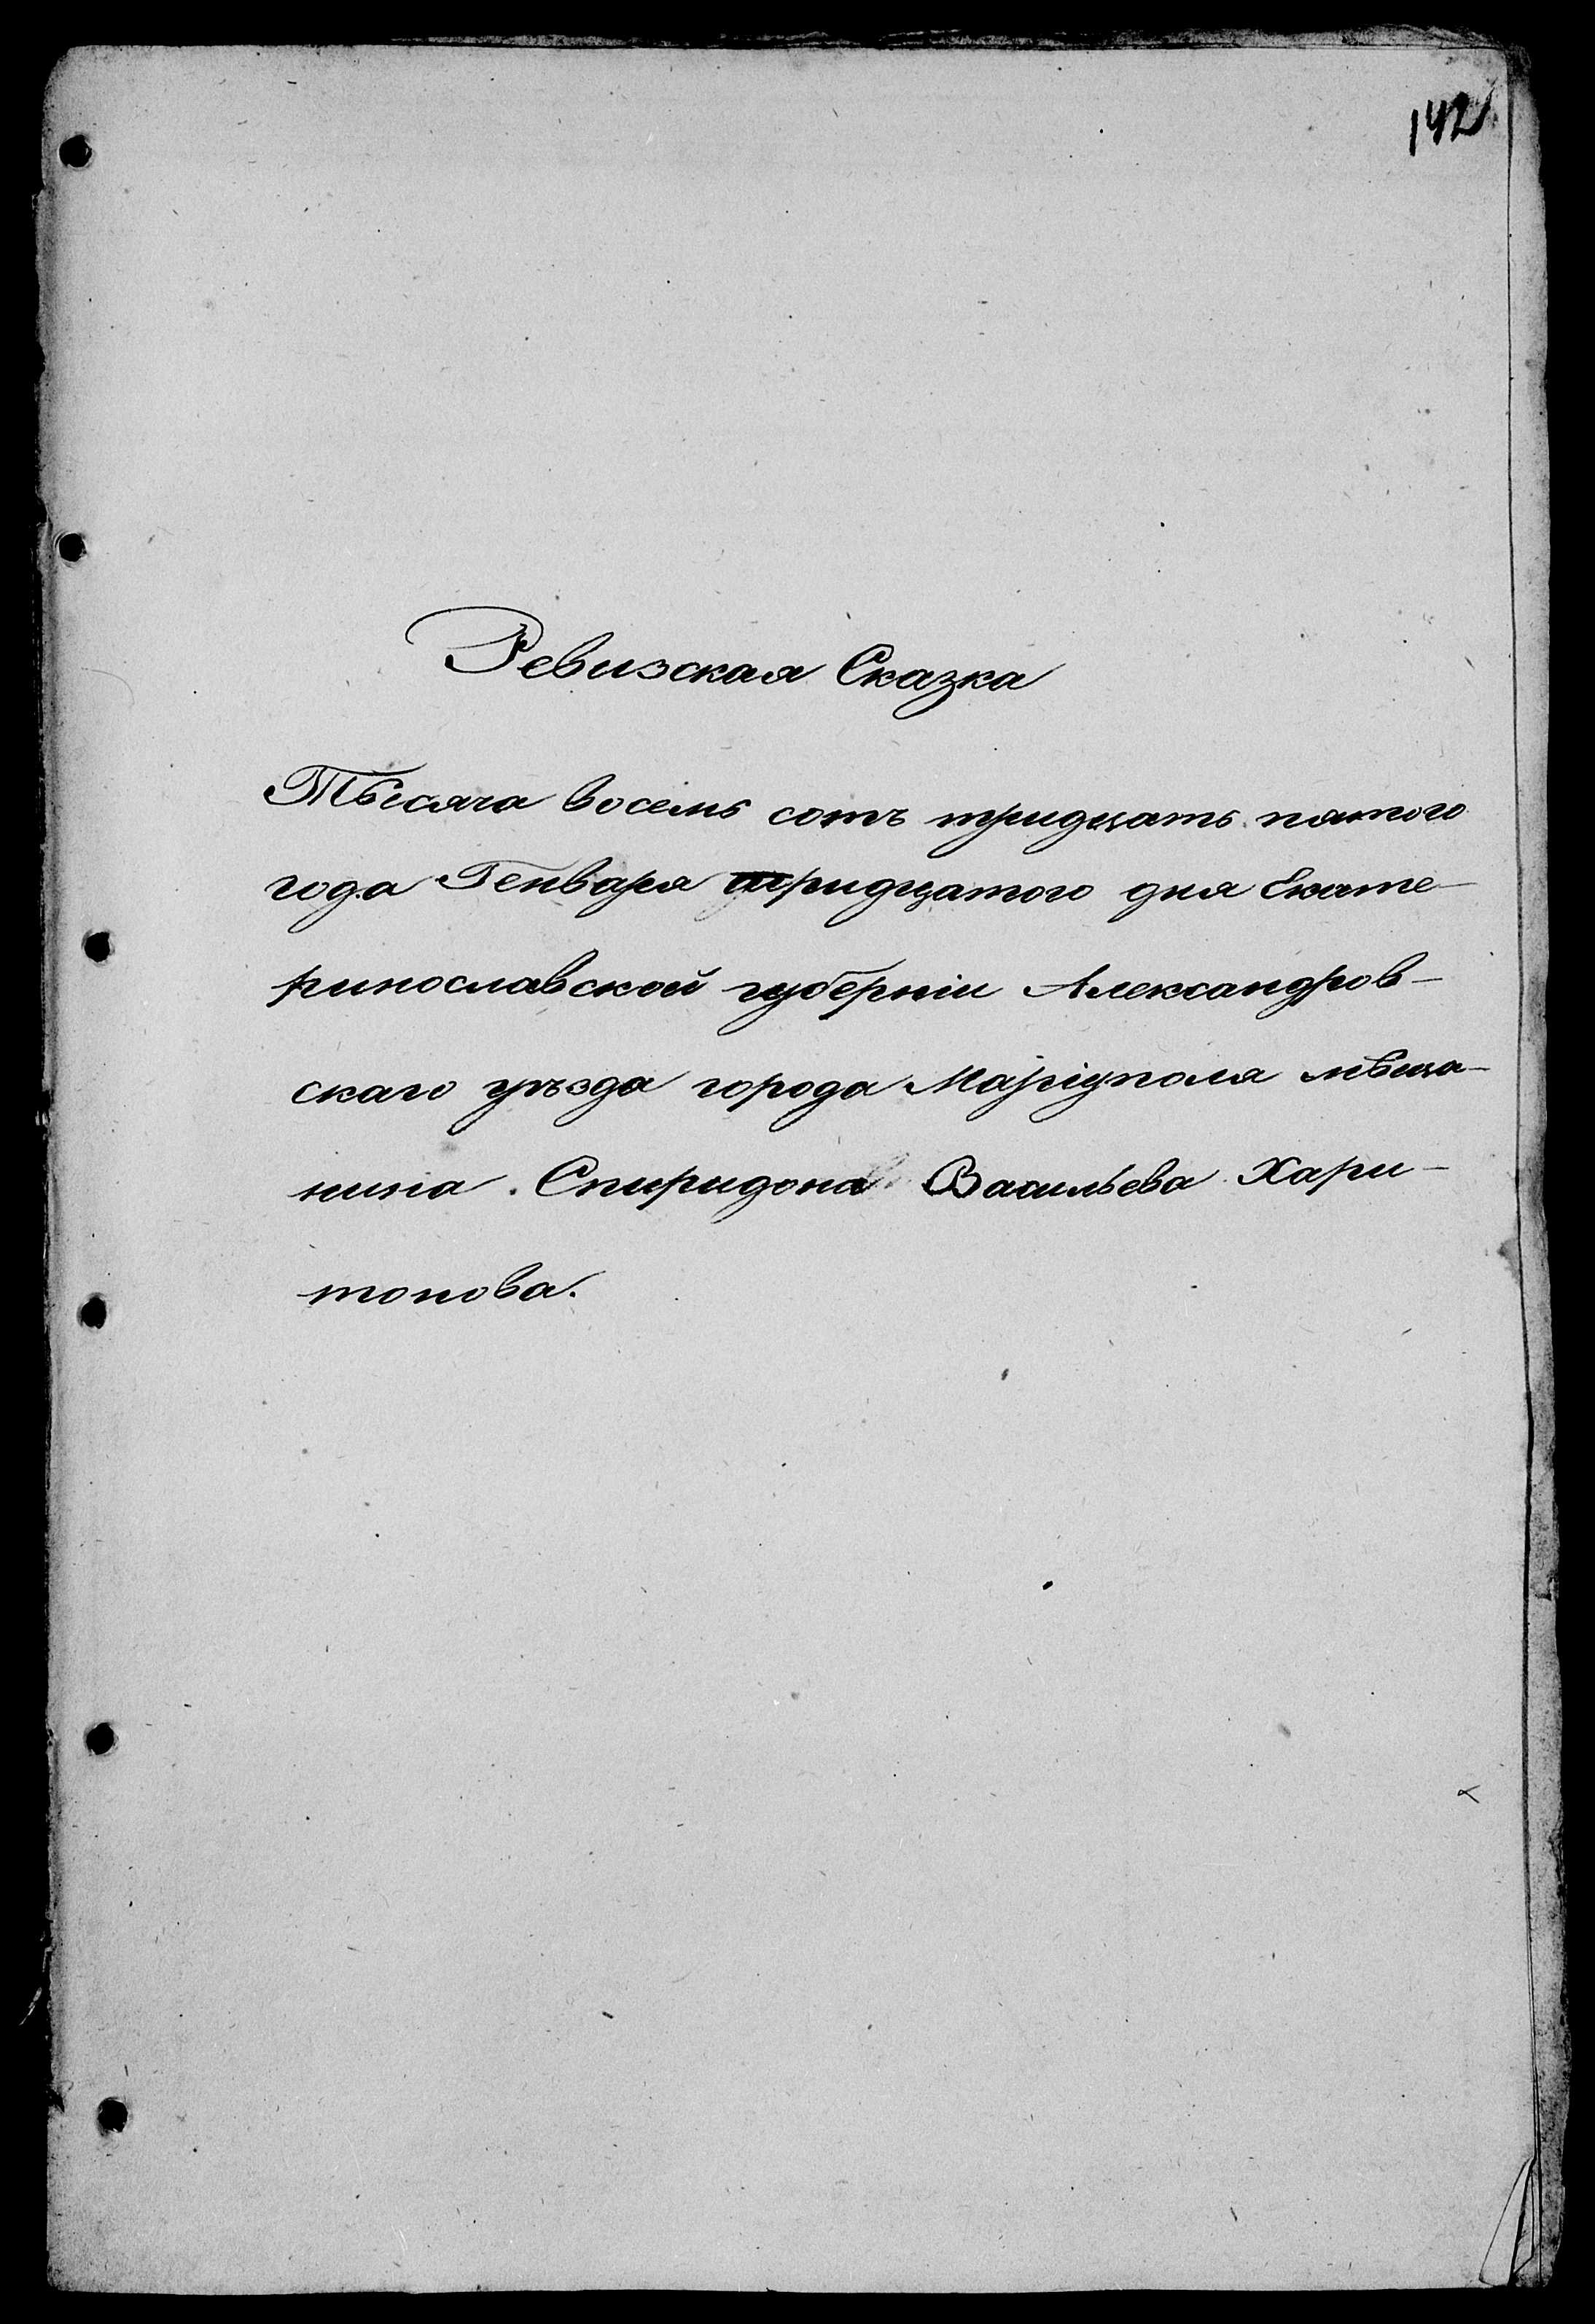 142
Ревизская Сказка
Тысяча восемь сотъ тридцать пятого
года Генваря тридцатого дня Екате-
ринославской губерніи Александров-
скаго уѣзда города Маріуполя мѣща-
нина Спиридона Васильева Хари-
тонова.